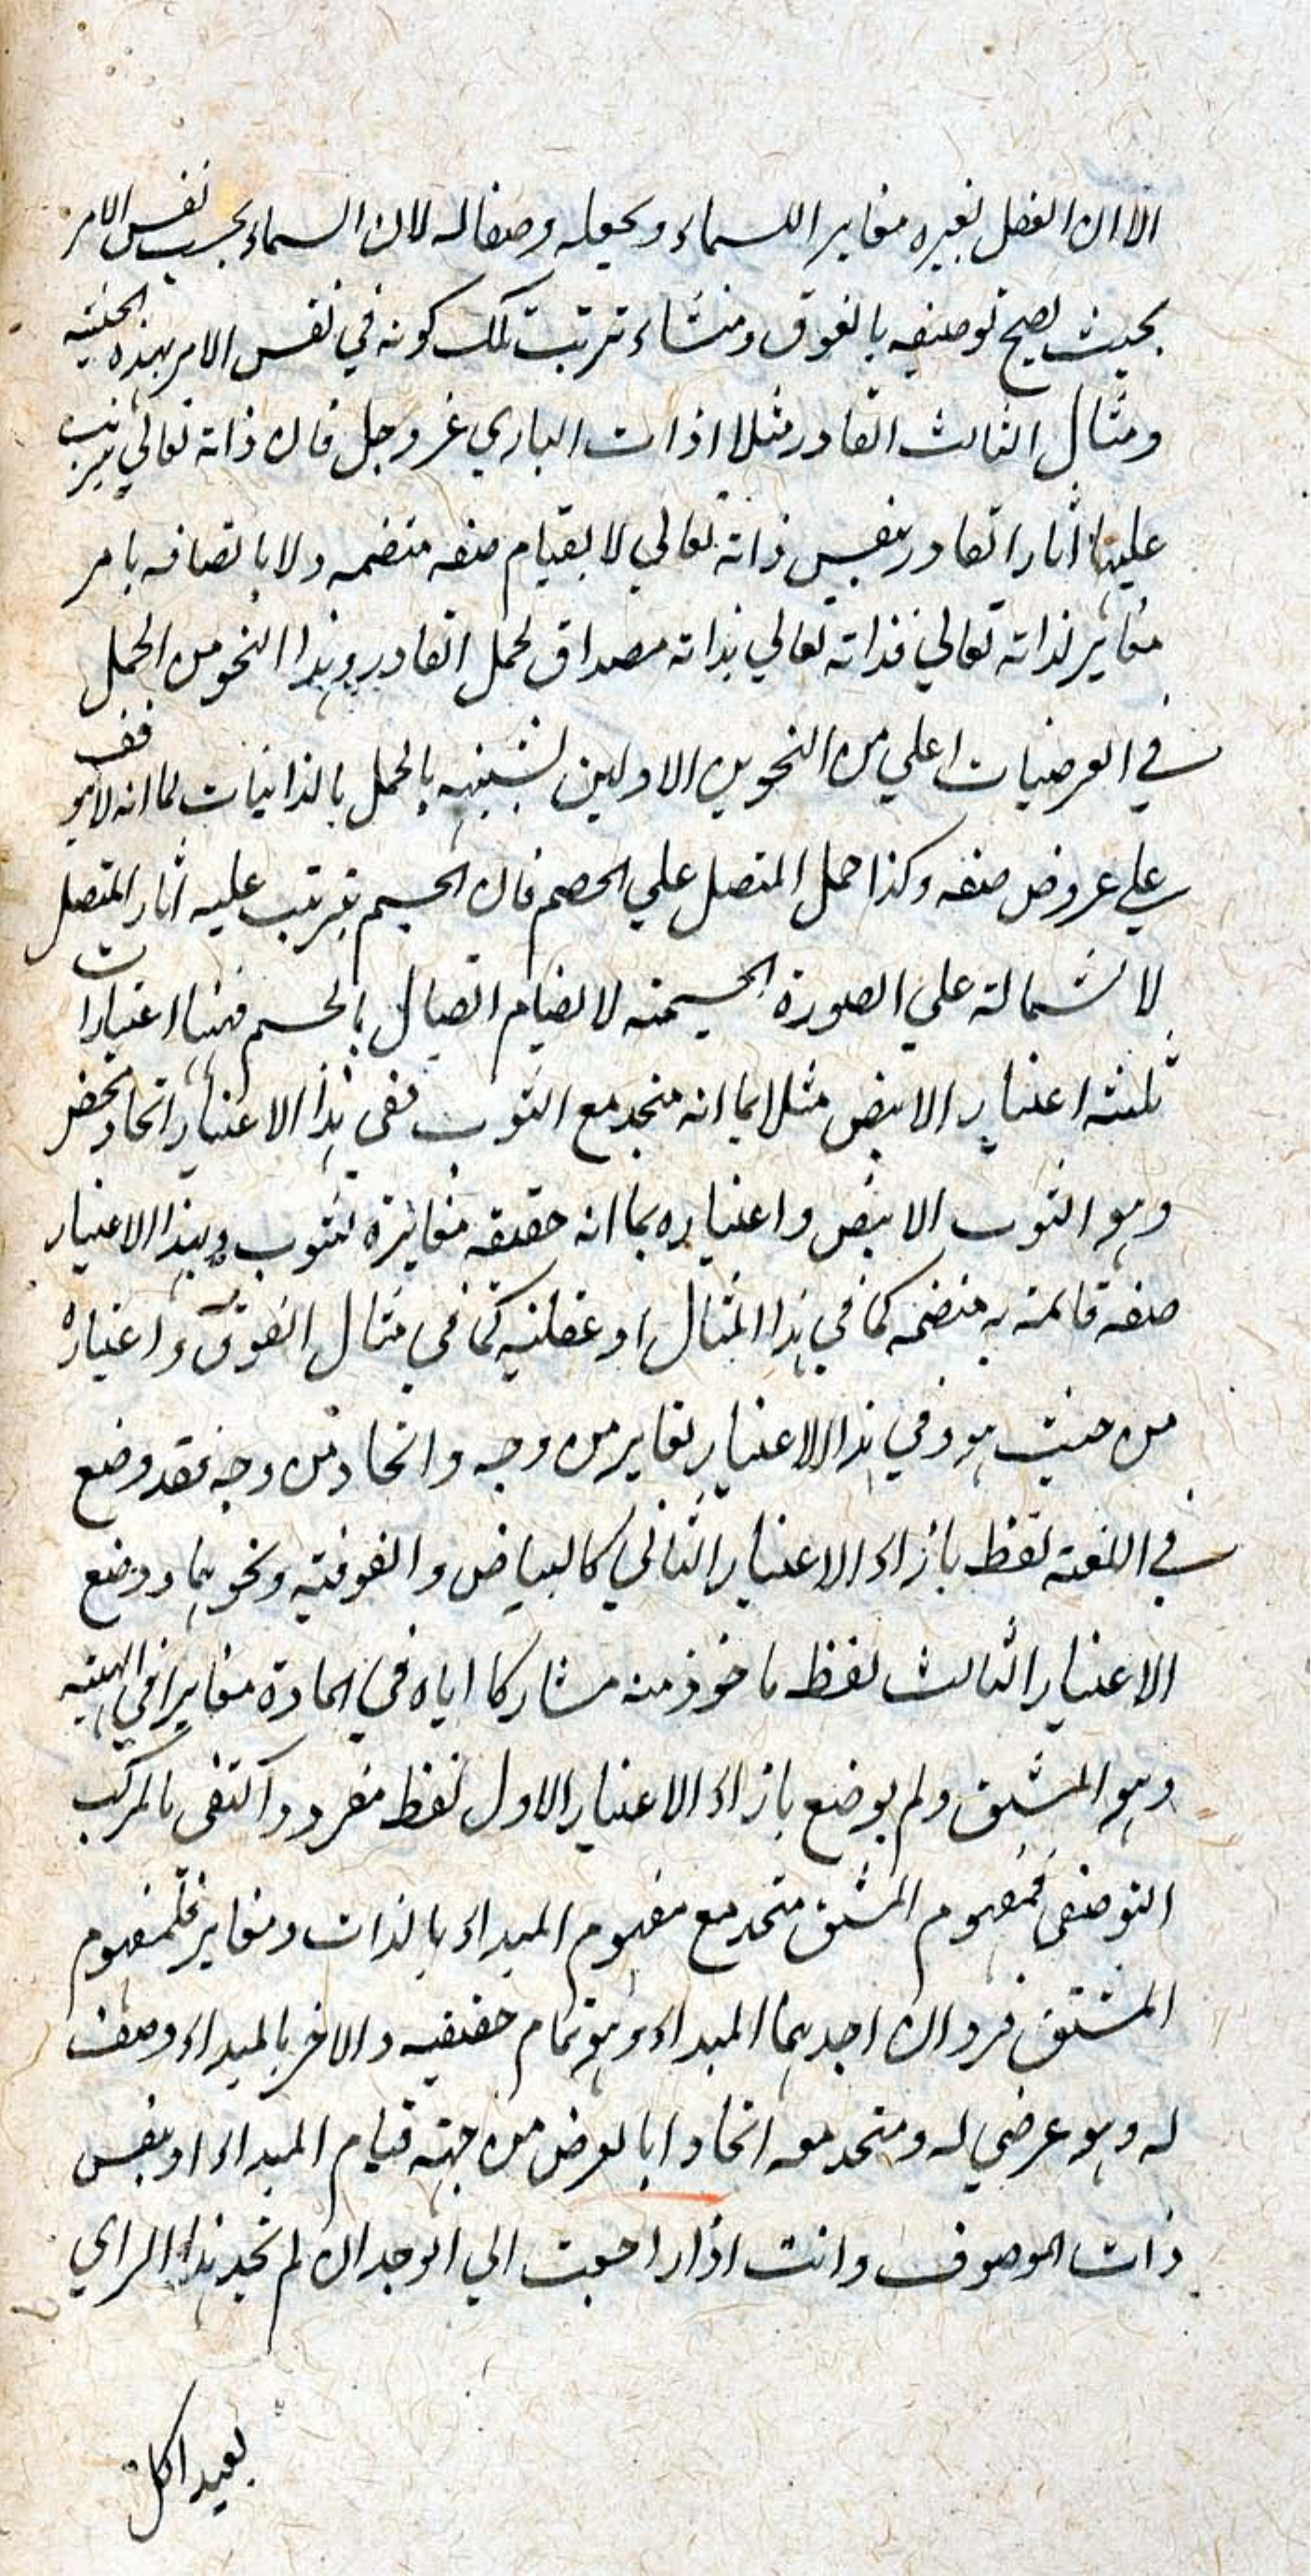 الا ان العقل يغيره مغايرا للسماء ويجعله وصفا له لان السماء بحسب نفس الامر
بحيث يصح توصيفه بالفوق ومنشاء ترتبت تلك كونه في نفس الامر بهذه الحيثيه
ومثال الثالث القادر مثلا اذات الباري عز وجل فان ذاته تعالي يترتب
عليها اثار القادر بنفس ذاته تعالي لا بقيام صفه منضمه ولا باتصافه بامر
مغاير لذاته تعالي فذاته تعالي بذاته مصداق لحمل القادر وهذا النحو من الحمل
في العرضيات اعلي من النحوين الاولين لشبهه بالحمل بالذاتيات لما انه لا يتوقف
علي عروض صفه وكذا حمل المتصل علي الجسم فان الجسم يترتب عليه اثار المتصل
لاشتماله علي الصورة الجسميه لا لقيام اتصال بالجسم فههنا اعتبارات
ثلثه اعتبار الابيض مثلا بما انه متحد مع الثوب ففي هذا الاعتبار اتحاد محض
وهو الثوب الابيض واعتباره بما انه حقيقه مغايرة للثوب وبهذا الاعتبار
صفه قائمة به منضمه كما في هذا المثال او عقليه كما في مثال الفوق واعتباره
من حيث هو وفي هذا الاعتبار تغاير من وجه واتحاد من وجه فقد وضع
في اللغة لفظ بازاء الاعتبار الثاني كالبياض والفوقيه ونحوهما ووضع
الاعتبار الثالث لفظ ماخوذ منه مشاركا اياه في المادة مغايرا في الهيئه
وهو المشتق ولم يوضع بازاء الاعتبار الاول لفظ مفرد واكتفي بالمركب
التوصيفي فمفهوم المشتق متحد مع مفهوم المبداء بالذات ومغاير فلمفهوم
المشتق فردان احدهما المبداء وهو تمام حقيقيه والاخر بالمبداء وصف
له وهو عرضي له ومتحد معه اتحادا بالعرض من جهة قيام المبداء او بنفس
ذات الموصوف وانت اذا راجعت الي الوجدان لم تجد هذا الراي
بعيدا كل